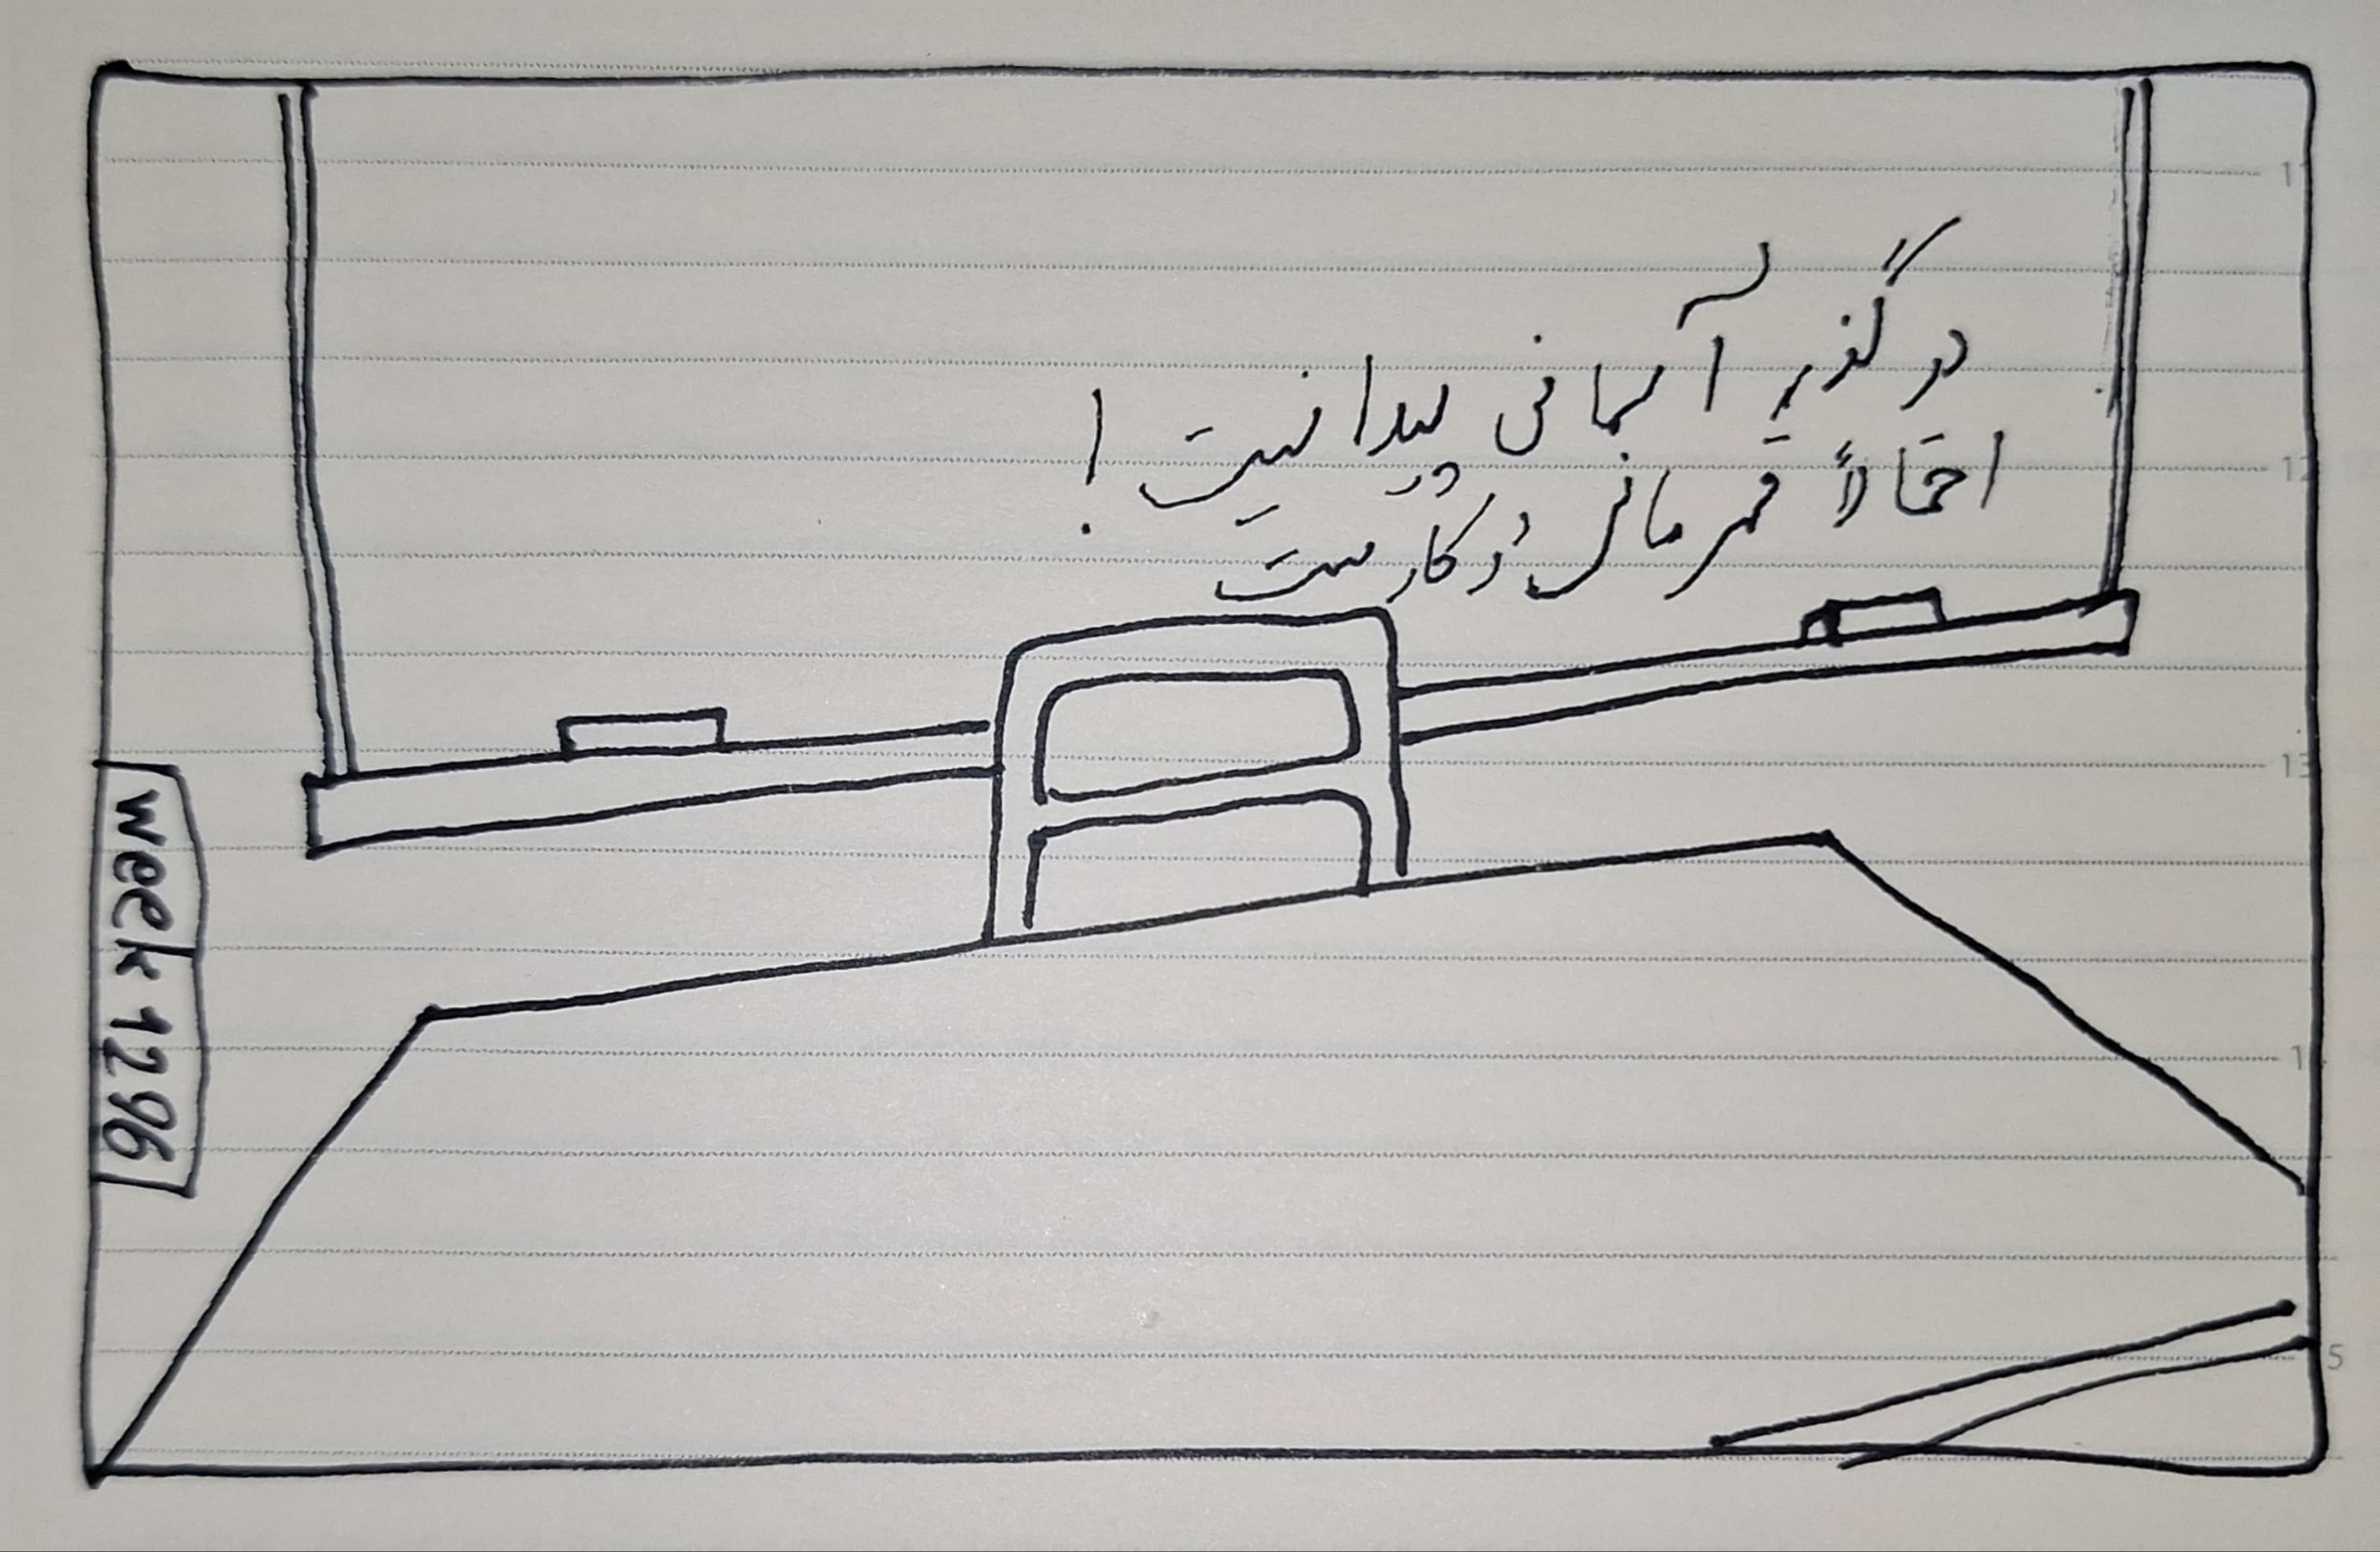 در گذر آسمانی پیدا نیست !
احتمالاً قهرمانی در کارست
week 1296
12
13